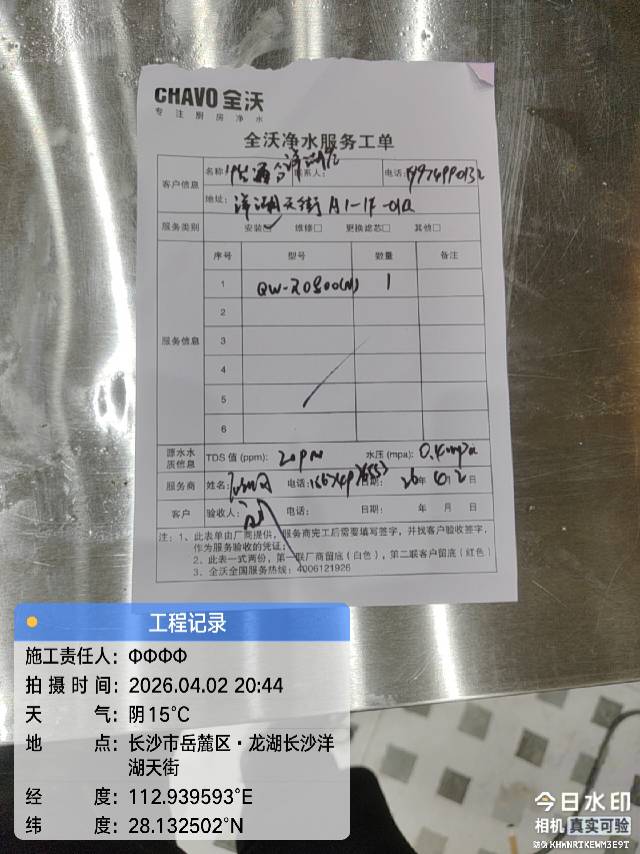 CHAVO 全沃
专注厨房净水
全沃净水服务工单
客户信息 名称: 联系人: 电话:
地址: 洋湖天街 A1-1F-01a
服务类别 安装☑ 维修□ 更换滤芯□ 其他□
服务信息 序号 型号 数量 备注
1 QW-RO800(N) 1
2
3
4
5
6
源水水质信息 TDS 值 (ppm): 水压 (mpa): 0.4mpa
服务商 姓名: 电话: 日期: 26年 4.2日
客户 验收人: 电话: 日期: 年 月 日
注: 1、此表单由厂商提供，服务商完工后需要填写签字，并找客户验收签字，
作为服务验收的凭证；
2、此表一式两份，第一联厂商留底（白色），第二联客户留底（红色）
3、全沃全国服务热线：4006121926
工程记录
施工责任人: ΦΦΦΦ
拍摄时间: 2026.04.02 20:44
天 气: 阴 15℃
地 点: 长沙市岳麓区·龙湖长沙洋
湖天街
经 度: 112.939593°E
纬 度: 28.132502°N
今日水印
相机 真实可验
防伪 KHWNRTKEWM3E9T